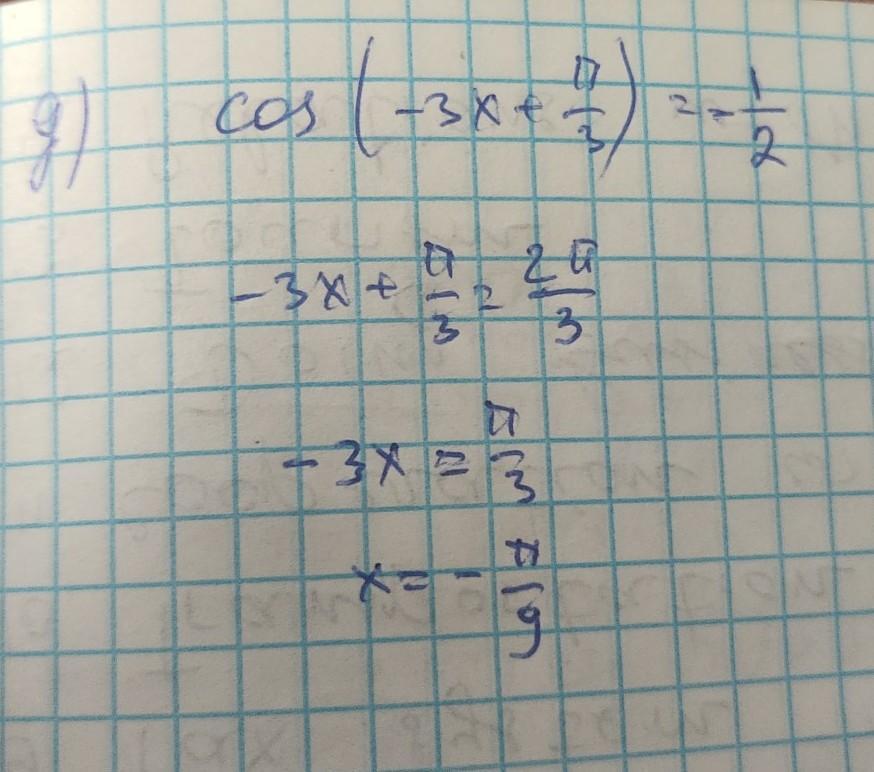 g) cos (-3x + π/3) = -1/2
-3x + π/3 = 2π/3
-3x = π/3
x = -π/9